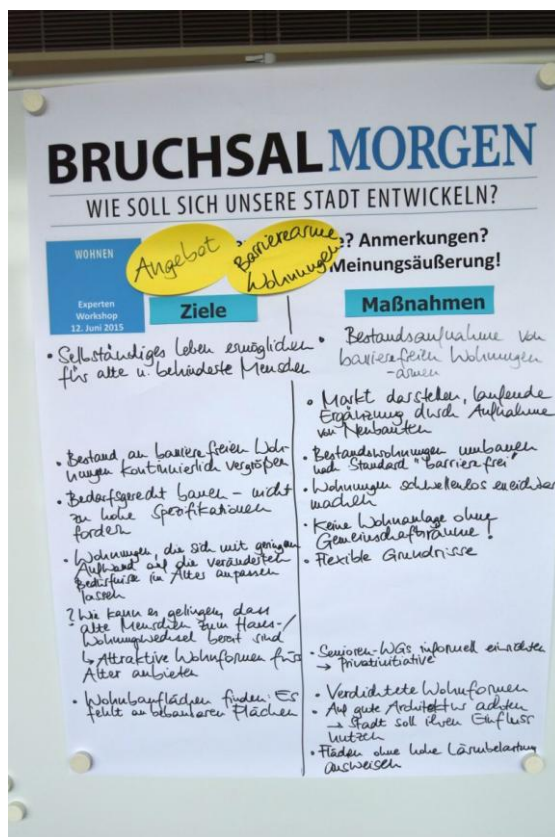 BRUCHSAL MORGEN
WIE SOLL SICH UNSERE STADT ENTWICKELN?
WOHNEN
Experten
Workshop
12. Juni 2015
Angebot
Barrierearme
Wohnungen
e? Anmerkungen?
Meinungsäußerung!
Ziele
• Selbständiges Leben ermöglichen
für alte u. behinderte Menschen
• Bestand an barrierefreien Woh-
nungen kontinuierlich vergrößern
• Bedarfsgerecht bauen – nicht
zu hohe Spezifikationen
fordern
• Wohnungen, die sich mit geringem
Aufwand auf die veränderten
Bedürfnisse im Alter anpassen
lassen
? Wie kann es gelingen, dass
alte Menschen zum Haus-/
Wohnungswechsel bereit sind
↳ Attraktive Wohnformen fürs
Alter anbieten
• Wohnbauflächen finden: Es
fehlt an bebaubaren Flächen
Maßnahmen
• Bestandsaufnahme von
barrierefreien Wohnungen
-armen
• Markt darstellen, laufende
Ergänzung durch Aufnahme
von Neubauten
• Bestandswohnungen umbauen
nach Standard "barrierefrei"
• Wohnungen schwellenlos erreichbar
machen
• Keine Wohnanlage ohne
Gemeinschaftsräume!
• Flexible Grundrisse
• Senioren-WGs informell einrichten
→ Privatinitiative
• Verdichtete Wohnformen
• Auf gute Architektur achten
→ Stadt soll ihren Einfluss
nutzen
• Flächen ohne hohe Lärmbelastung
ausweisen